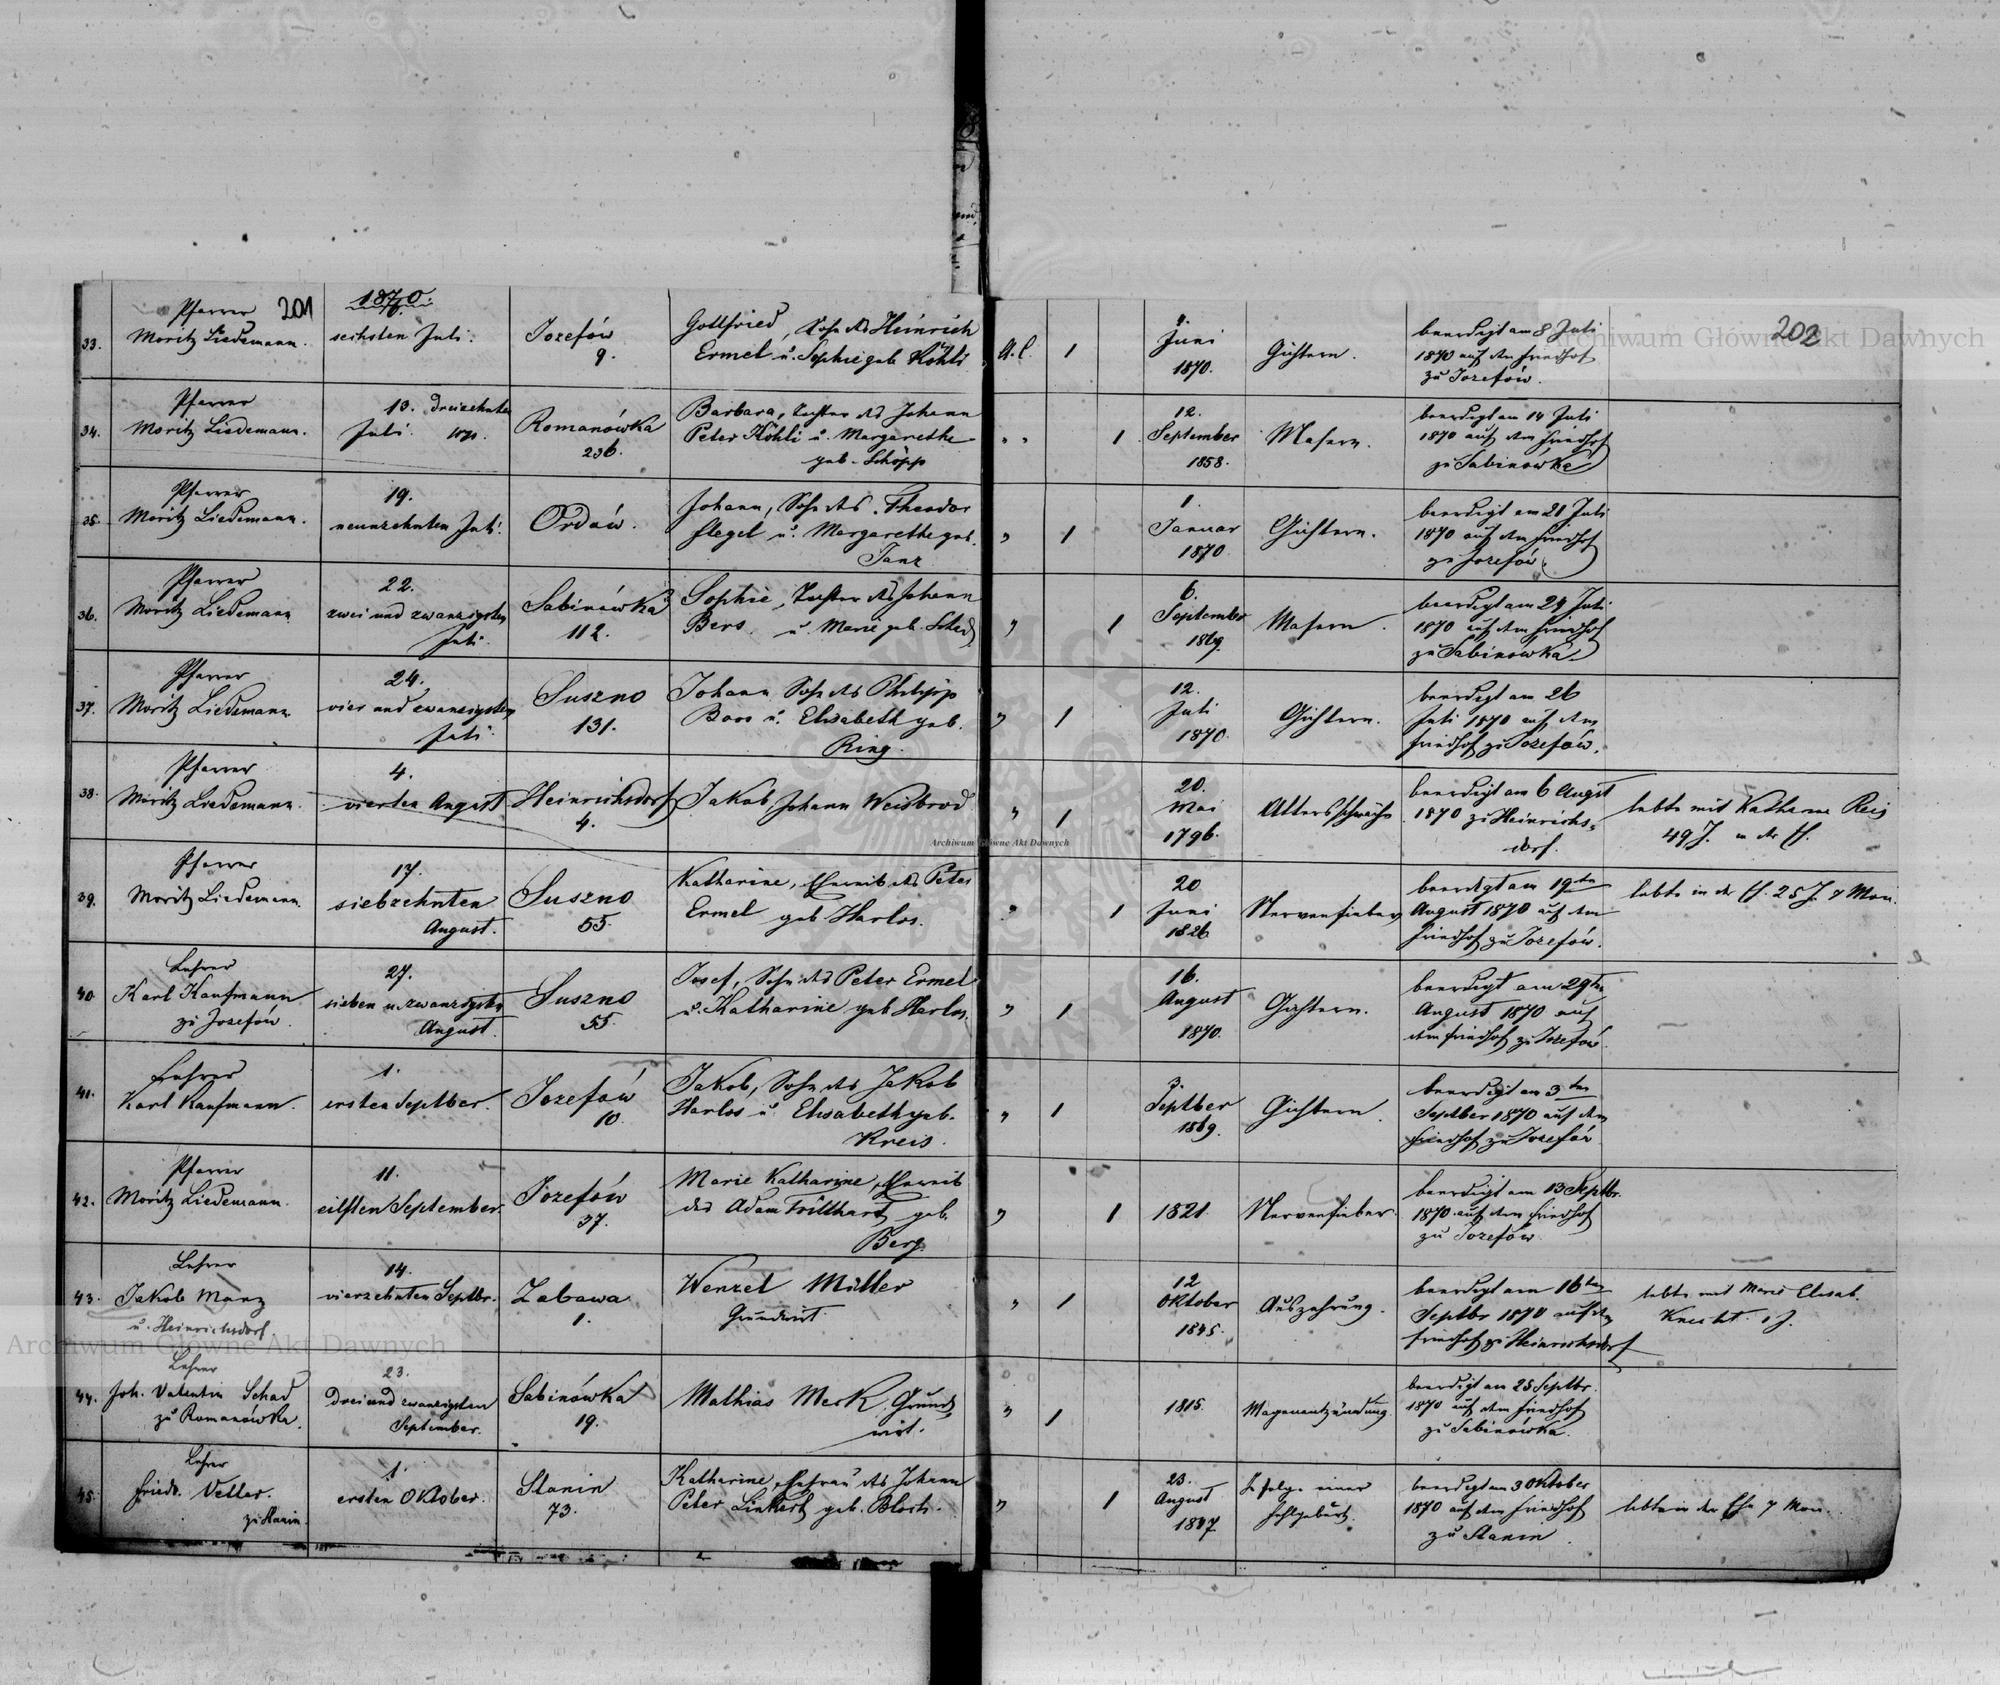 201
1870.
33.
Pfarrer
Moritz Liedemann.
sechsten Juli.
Jozefów
9.
Gottfried, Sohn des Heinrich
Ermel u. Sophie geb. Köhli
A. C.
1
9.
Juni
1870.
Gichtern.
beerdigt am 8 Juli
1870 auf dem Friedhof
zu Jozefów.
202
34.
Pfarrer
Moritz Liedemann.
13. dreizehnten
Juli 1870.
Romanówka
236.
Barbara, Tochter des Johann
Peter Köhli u. Margarethe
geb. Schöpp
" "
1
12.
September
1858.
Masern.
beerdigt am 14 Juli
1870 auf dem Friedhof
zu Sabinówka
35.
Pfarrer
Moritz Liedemann.
19.
neunzehnten Juli.
Ordów.
Johann, Sohn des Theodor
Flegel u. Margarethe geb.
Janz
"
1
1.
Januar
1870
Gichtern.
beerdigt am 21 Juli
1870 auf dem Friedhof
zu Jozefów.
36.
Pfarrer
Moritz Liedemann
22.
zwei und zwanzigsten
Juli.
Sabinówka
112.
Sophie, Tochter des Johann
Bers u. Marie geb. Schad
"
1
6.
September
1869.
Masern.
beerdigt am 24 Juli
1870 auf dem Friedhof
zu Sabinówka.
37.
Pfarrer
Moritz Liedemann
24.
vier und zwanzigsten
Juli.
Suszno
131.
Johann Sohn des Philipp
Boos u. Elisabeth geb.
Ring.
"
1
12.
Juli
1870.
Gichtern.
beerdigt am 26
Juli 1870 auf dem
Friedhof zu Jozefów.
38.
Pfarrer
Moritz Liedemann.
4.
vierten August
Heinrichsdorf
4.
Jakob Johann Weisbrod
"
1
20.
Mai
1796.
Altersschwäche
beerdigt am 6 August
1870 zu Heinrichs-
dorf.
lebte mit Katharina Reis
49 J. in der E.
39.
Pfarrer
Moritz Liedemann
17.
siebzehnten
August.
Suszno
55.
Katharine, Eheweib des Peter
Ermel geb. Harlos.
"
1
20
Juni
1826
Nervenfieber
beerdigt am 19ten
August 1870 auf dem
Friedhof zu Jozefów.
lebte in der E. 25 J. 7 Mon.
40.
Lehrer
Karl Kaufmann
zu Jozefów.
27.
sieben u. zwanzigsten
August.
Suszno
55.
Josef, Sohn des Peter Ermel
u. Katharine geb. Harlos.
"
1
16.
August
1870.
Gichtern.
beerdigt am 29ten
August 1870 auf
dem Friedhof zu Jozefów.
41.
Lehrer
Karl Kaufmann.
1.
ersten Septber.
Jozefów
10.
Jakob, Sohn des Jakob
Harlos u. Elisabeth geb.
Kreis.
"
1
3.
Septber
1869.
Gichtern.
beerdigt am 3ten
Septber 1870 auf dem
Friedhof zu Jozefów
42.
Pfarrer
Moritz Liedemann.
11.
eilften September.
Jozefów
37.
Marie Katharine, Eheweib
des Adam Trillhart geb.
Berg
"
1
1821.
Nervenfieber.
beerdigt am 13 Septbr.
1870 auf dem Friedhof
zu Jozefów
43.
Lehrer
Jakob Manz
u. Heinrichsdorf
14.
vierzehnten Septbr.
Zabawa
1.
Wenzel Müller
Grundwirt
"
1
12
Oktober
1845.
Auszehrung.
beerdigt am 16ten
Septbr 1870 auf dem
Friedhof zu Heinrichsdorf
lebte mit Marie Elisab.
Knecht 1 J.
44.
Lehrer
Joh. Valentin Schad
zu Romanówka.
23.
drei und zwanzigsten
September.
Sabinówka
19.
Mathias Merk, Grund
wirt.
"
1
1815.
Magenentzündung.
beerdigt am 25 Septbr.
1870 auf dem Friedhof
zu Sabinówka.
45.
Lehrer
Friedr. Vetter.
zu Stanin.
1.
ersten Oktober.
Stanin
73.
Katharine, Ehefrau des Johann
Peter Linkart geb. Bloch.
"
1
23.
August
1847.
In folge einer
Fehlgeburt.
beerdigt am 3 Oktober
1870 auf dem Friedhof
zu Stanin.
lebte in der Ehe 7 Mon.
Archiwum Główne Akt Dawnych
Archiwum Główne Akt Dawnych
Archiwum Główne Akt Dawnych